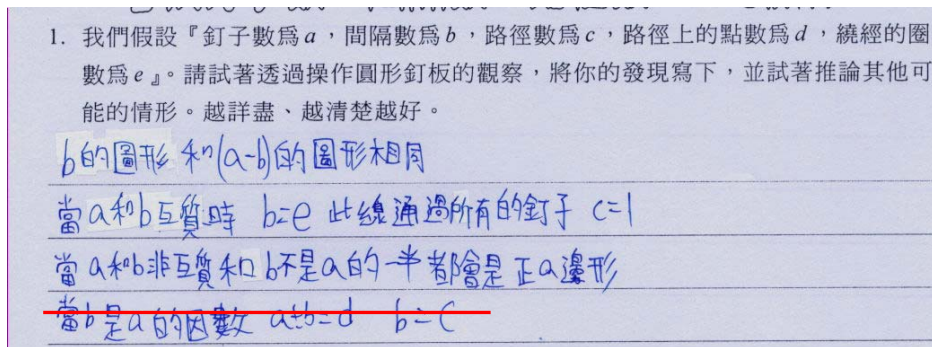 1. 我們假設『釘子數為a，間隔數為b，路徑數為c，路徑上的點數為d，繞經的圈
數為e』。請試著透過操作圓形釘板的觀察，將你的發現寫下，並試著推論其他可
能的情形。越詳盡、越清楚越好。
b的圖形和(a-b)的圖形相同
當a和b互質時 b=e 此線通過所有的釘子 c=1
當a和b非互質和b不是a的一半都會是正a邊形
當b是a的因數 a÷b=d b=c